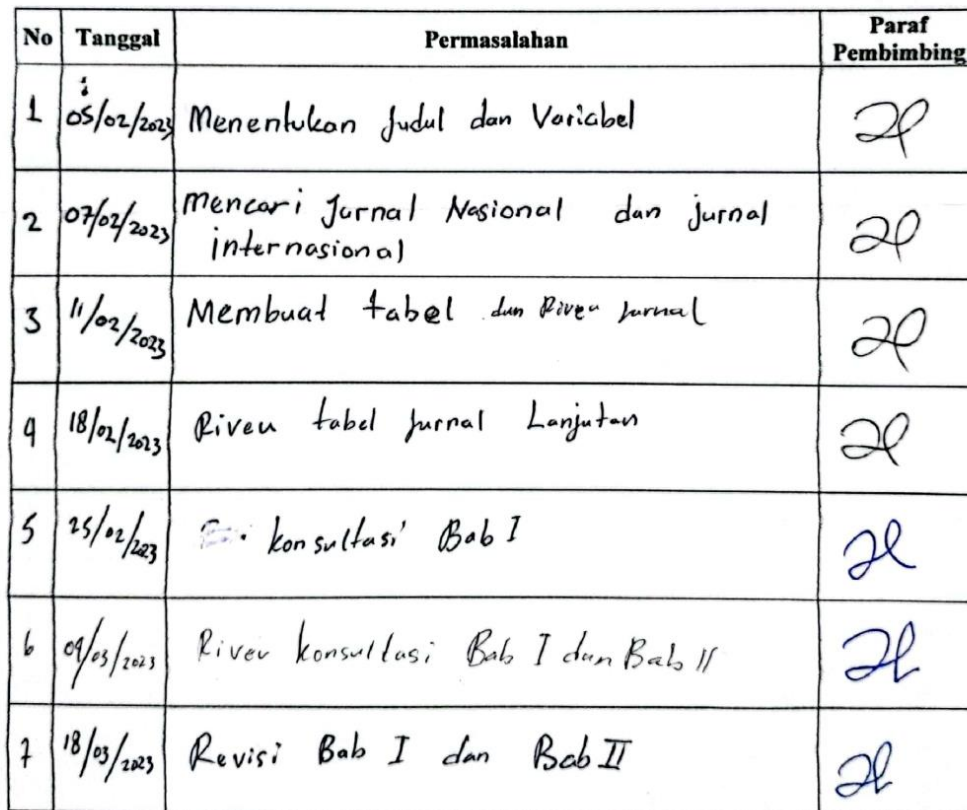 No Tanggal Permasalahan Paraf Pembimbing
1 05/02/2023 Menentukan Judul dan Variabel
2 07/02/2023 Mencari Jurnal Nasional dan jurnal
internasional
3 11/02/2023 Membuat tabel dan Riveu Jurnal
4 18/02/2023 Riveu tabel Jurnal Lanjutan
5 25/02/2023 konsultasi Bab I
6 /03/2023 Riveu konsultasi Bab I dan Bab II
7 18/03/2023 Revisi Bab I dan Bab II